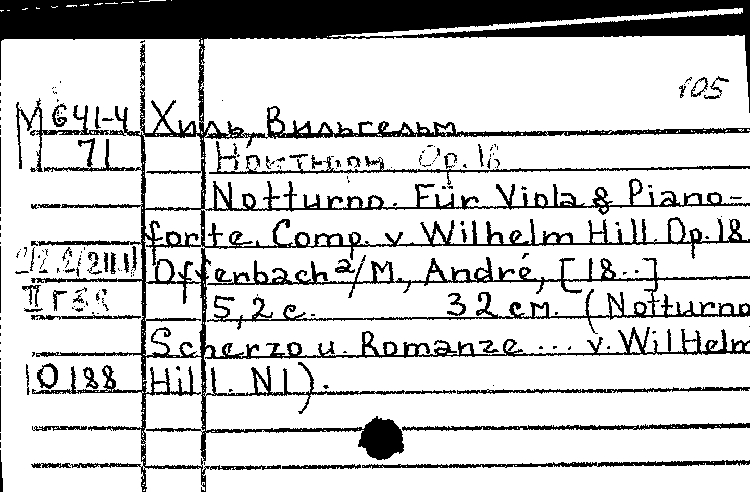 105
М 641-4 Хиль, Вильгельм
71 Ноктюрн Op. 18
Notturno. Für Viola & Piano-
forte. Comp. v Wilhelm Hill. Op. 18
Offenbach a/M., André, [18..]
5,2 с. 32 см. (Notturno
Scherzo u. Romanze ... v. Wilhelm
10188 Hill. N1).